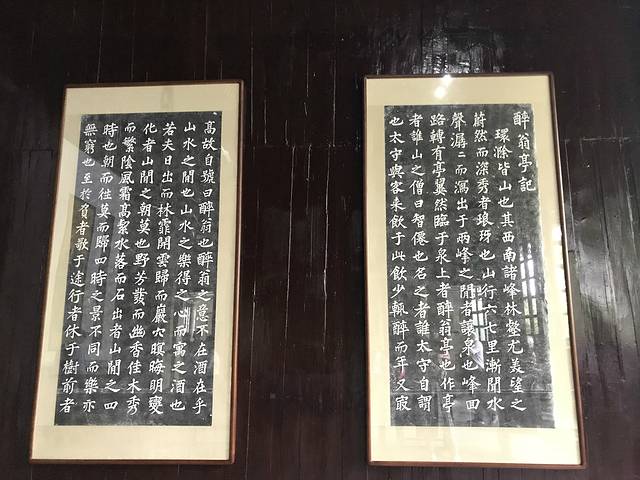 醉翁亭記
環滁皆山也其西南諸峰林壑尤美望之
蔚然而深秀者琅玡也山行六七里漸聞水
聲潺々而瀉出于兩峰之間者讓泉也峰回
路轉有亭翼然臨于泉上者醉翁亭也作亭
者誰山之僧曰智僊也名之者誰太守自謂
也太守與客來飲于此飲少輒醉而年又㝡
高故自號曰醉翁也醉翁之意不在酒在乎
山水之間也山水之樂得之心而寓之酒也
若夫日出而林霏開雲歸而巖穴暝晦明變
化者山間之朝莫也野芳發而幽香佳木秀
而繁陰風霜高絜水落而石出者山間之四
時也朝而往莫而歸四時之景不同而樂亦
無窮也至於負者歌于途行者休于樹前者